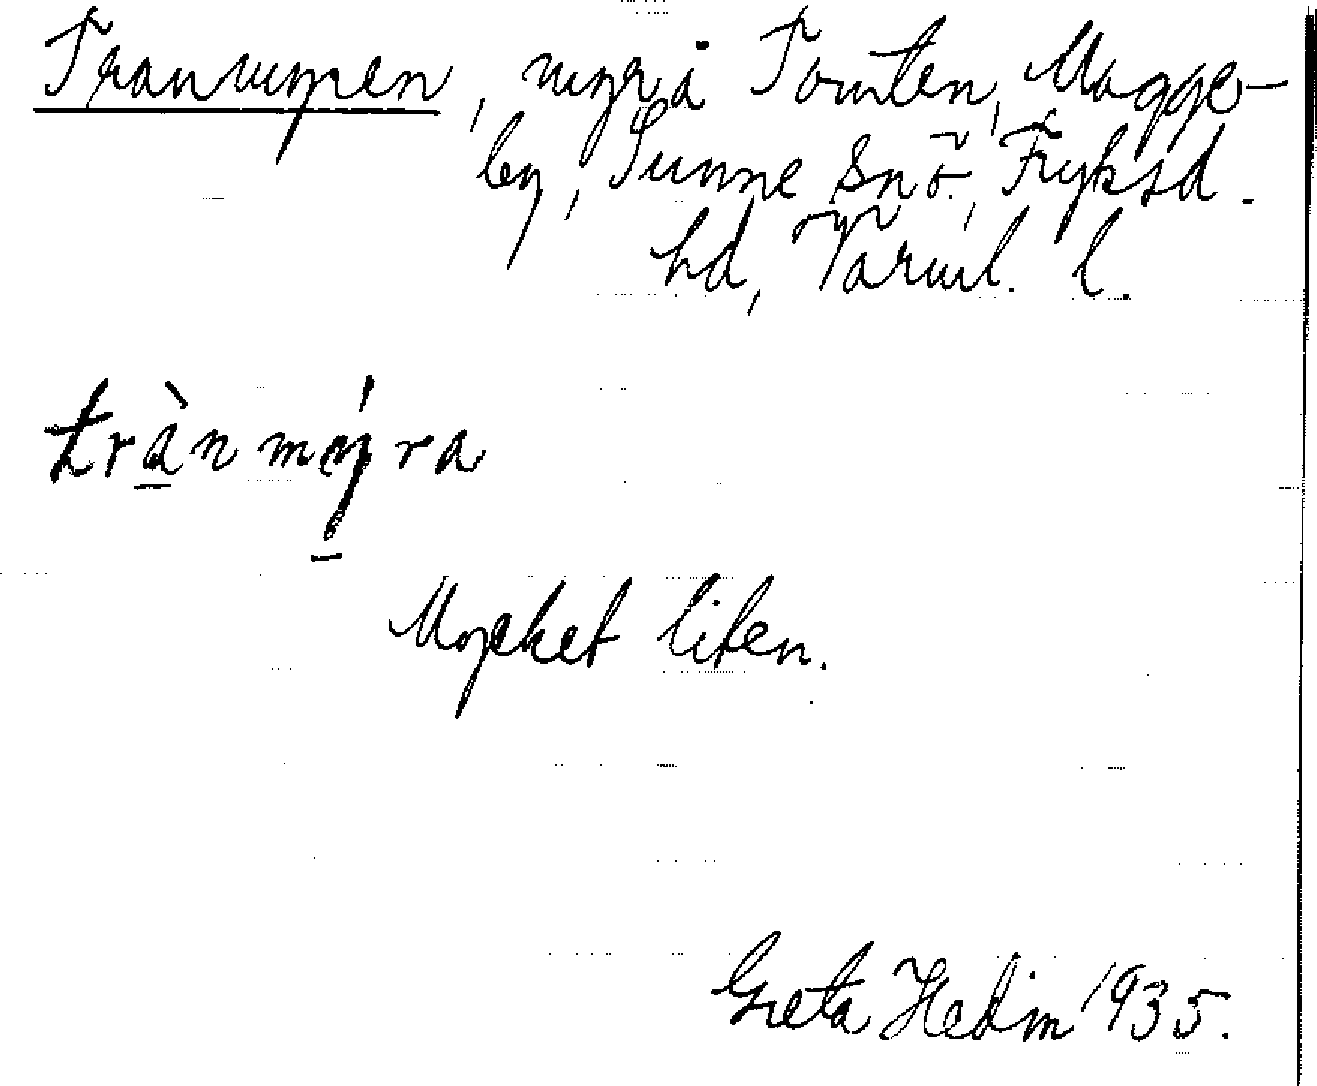 Tranmyren, myr å Tomten, Magge-
by, Sunne sn̄, Fryksd.
hd, Värml. l.
trànmýra
Mycket liten.
Greta Hedin 1935.